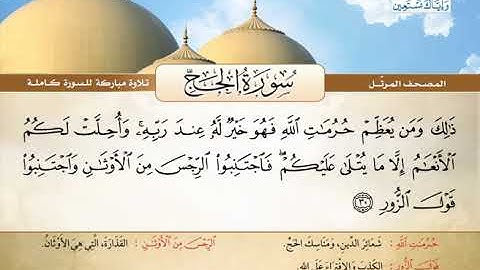 وَإِيَّاكَ نَسْتَعِينُ
المصحف المرتّل
سُورَةُ الحَجِّ
تلاوة مباركة للسورة كاملة
ذَٰلِكَ وَمَن يُعَظِّمْ حُرُمَٰتِ ٱللَّهِ فَهُوَ خَيْرٌ لَّهُۥ عِندَ رَبِّهِۦ ۗ وَأُحِلَّتْ لَكُمُ
ٱلْأَنْعَٰمُ إِلَّا مَا يُتْلَىٰ عَلَيْكُمْ ۖ فَٱجْتَنِبُوا۟ ٱلرِّجْسَ مِنَ ٱلْأَوْثَٰنِ وَٱجْتَنِبُوا۟
قَوْلَ ٱلزُّورِ ٣٠
حُرُمَٰتِ ٱللَّهِ : شَعَائِرَ الدِّينِ، وَمَنَاسِكَ الحَجِّ. ٱلرِّجْسَ مِنَ ٱلْأَوْثَٰنِ : القَذَارَةَ، الَّتِي هِيَ الأَوْثَانُ.
قَوْلَ ٱلزُّورِ : الكَذِبَ وَالِافْتِرَاءَ عَلَى اللهِ.